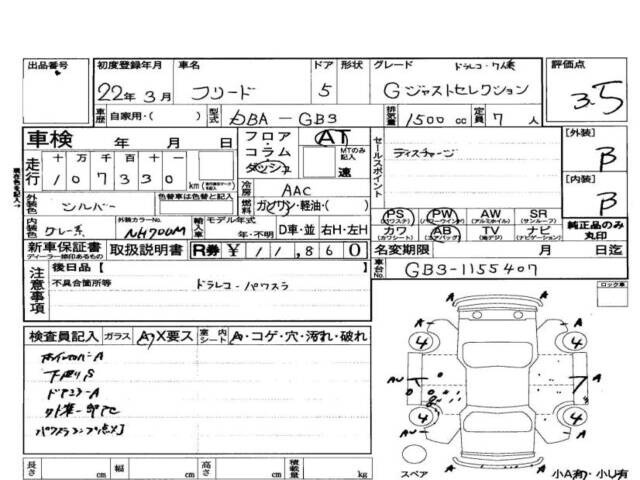 出品番号
初度登録年月
22年 3月
車名
フリード
ドア
5
形状
グレード
ドラレコ・7人乗
Gジャストセレクション
評価点
3.5
車歴 自家用・( )
型式
DBA-GB3
排気量 1500 cc
定員 7 人
車検 年 月 日
フロア・コラム・ダッシュ
AT
MTのみ記入
速
セールスポイント
ディスチャージ
[外装]
B
[内装]
B
走行
十 万 千 百 十 一
107330 km
冷房
AAC
外装色
シルバー
色替車は色替と記入
燃料
ガソリン・軽油・( )
内装色
グレー系
外装カラーNo.
NH700M
輸入車
モデル年式
年・不明
D車・並
右H・左H
PS (パワステ)
PW (パワーウインド)
AW (アルミホイル)
SR (サンルーフ)
カワ (カワシート)
AB (エアバッグ)
TV (地デジ)
ナビ (ナビゲーション)
純正品のみ丸印
新車保証書
ディーラー捺印あるもの
取扱説明書
R券
¥11,860
名変期限 月 日迄
注意事項
後日品【
不具合箇所等
ドラレコ・パワスラ
車台No.
GB3-1155407
ロック車
検査員記入
ガラス
A・X要ス
室内
シート
A・コゲ・穴・汚れ・破れ
ホイールカバーA
下廻りS
ドアミラーA
A
A
4
4
AU
A
4
4
A
A
スペア
小A有・小U有
長さ cm
幅 cm
高さ cm
積載量 kg